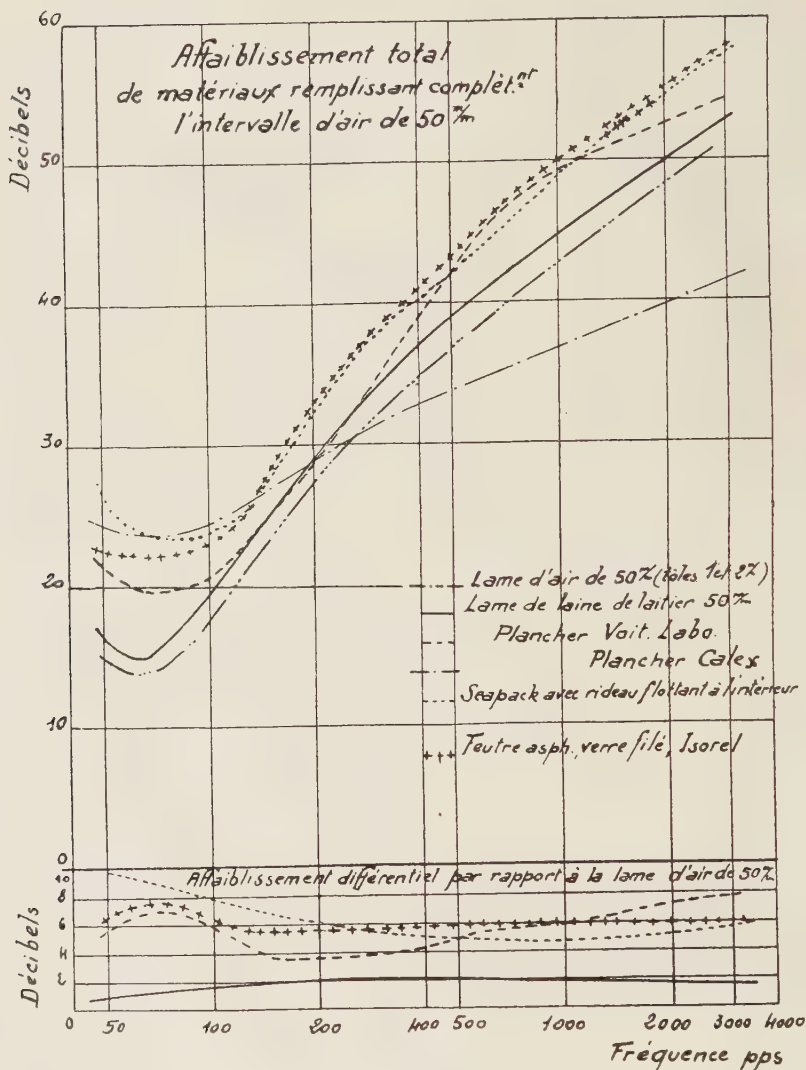 60
Affaiblissement total
de matériaux remplissant complèt.nt
l'intervalle d'air de 50 m/m
Décibels
50
40
30
20
Lame d'air de 50% (tôles 1 et 2%)
Lame de laine de laitier 50%
Plancher Voit. Labo.
Plancher Calex
Seapack avec rideau flottant à l'intérieur
10
Feutre asph., verre filé, Isorel
0
Affaiblissement différentiel par rapport à la lame d'air de 50%
10
8
6
4
2
Décibels
0 50 100 200 400 500 1000 2000 3000 4000
Fréquence pps